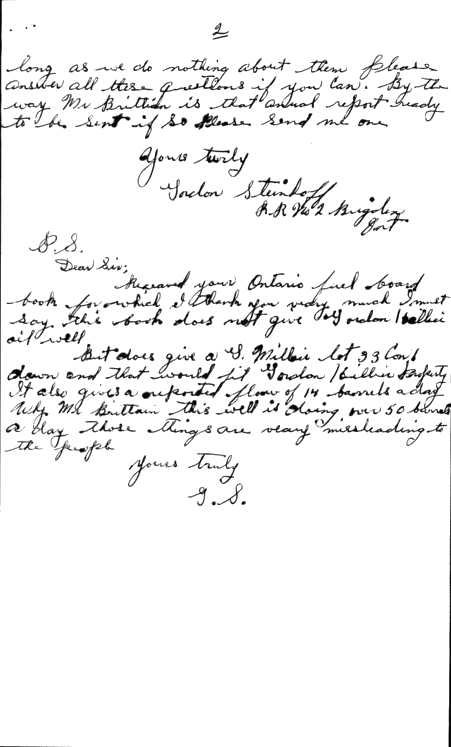 2
long as we do nothing about them please
answer all these questions if you can. By the
way Mr Brittian is that anual report ready
to be sent if so please send me one
Yours turly
Gordon Steinhoff
R.R No 2
Ont
P.S.
Dear Sir;
your Ontario fuel board
book for which I thank you veary much I must
say this book does not give Gordon
oil well
But does give a G. Millier lot 23 Con 1
dawn and that would fit Gordon property
It also gives a reported flow of 14 barrels a day
Why Mr Brittain this well is doing over 50 barrels
a day those things are veary missleading to
the people
yours truly
G. S.